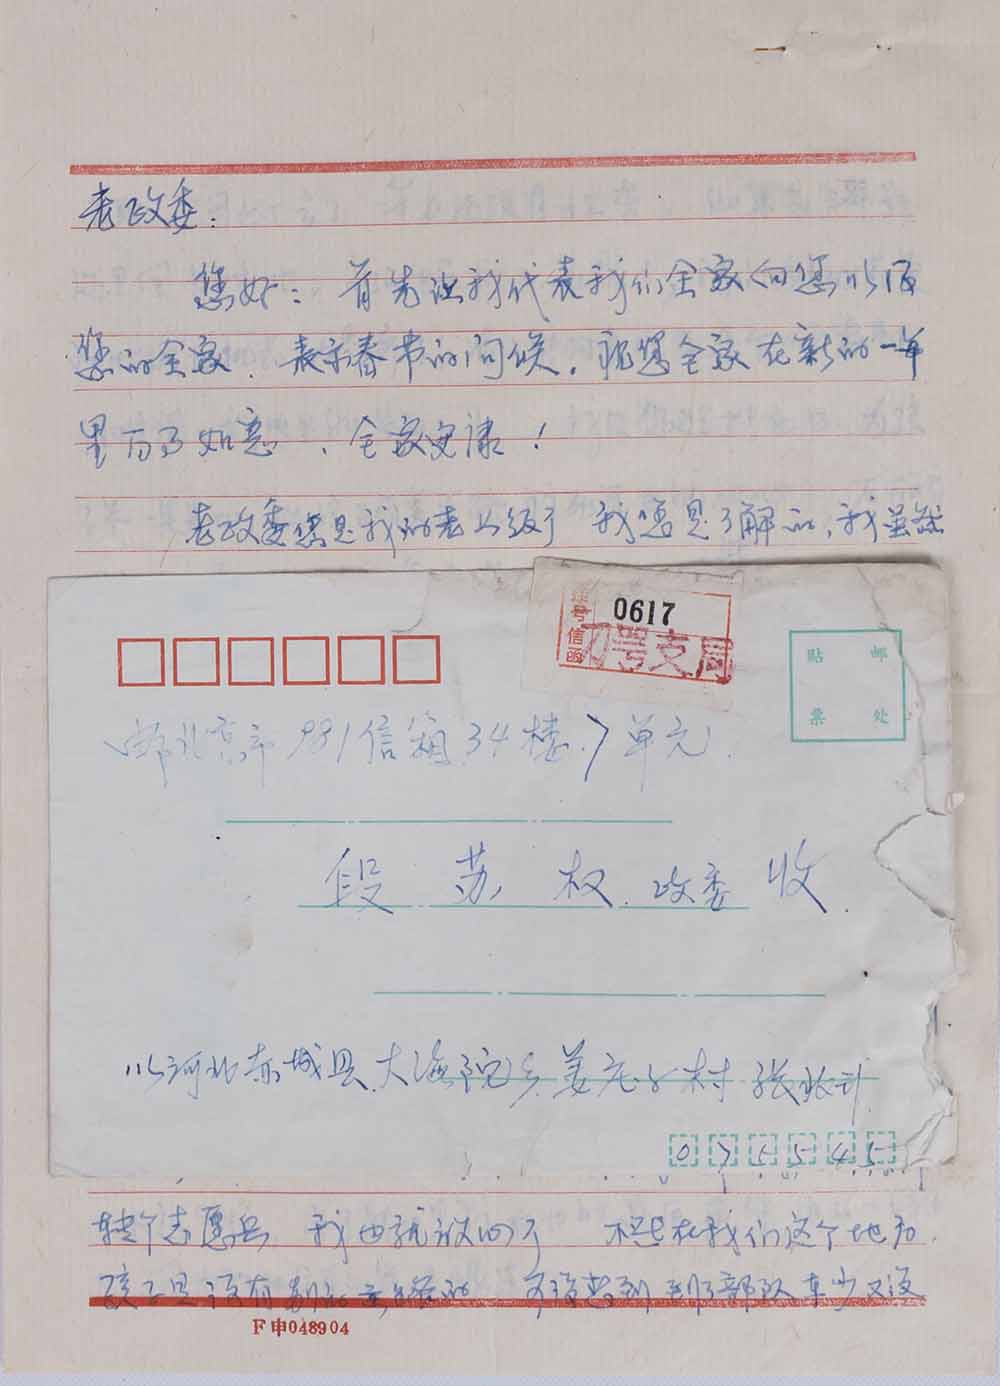 老政委：
您好：首先让我代表我们全家向您以及
您的全家、表示春节的问候。祝您全家在新的一年
里万事如意、全家安康！
老政委您是我的老上级了 我您是了解的，我虽然
挂号信函
0617
支局
贴 邮
票 处
邮北京市981信箱34楼7单元
段苏权 政委 收
河北赤城县大海陀乡姜庄子村 张
075545
转个志愿兵 我也就放心了 不然在我们这个地方
孩子是没有别的出路的 部队
F申048904